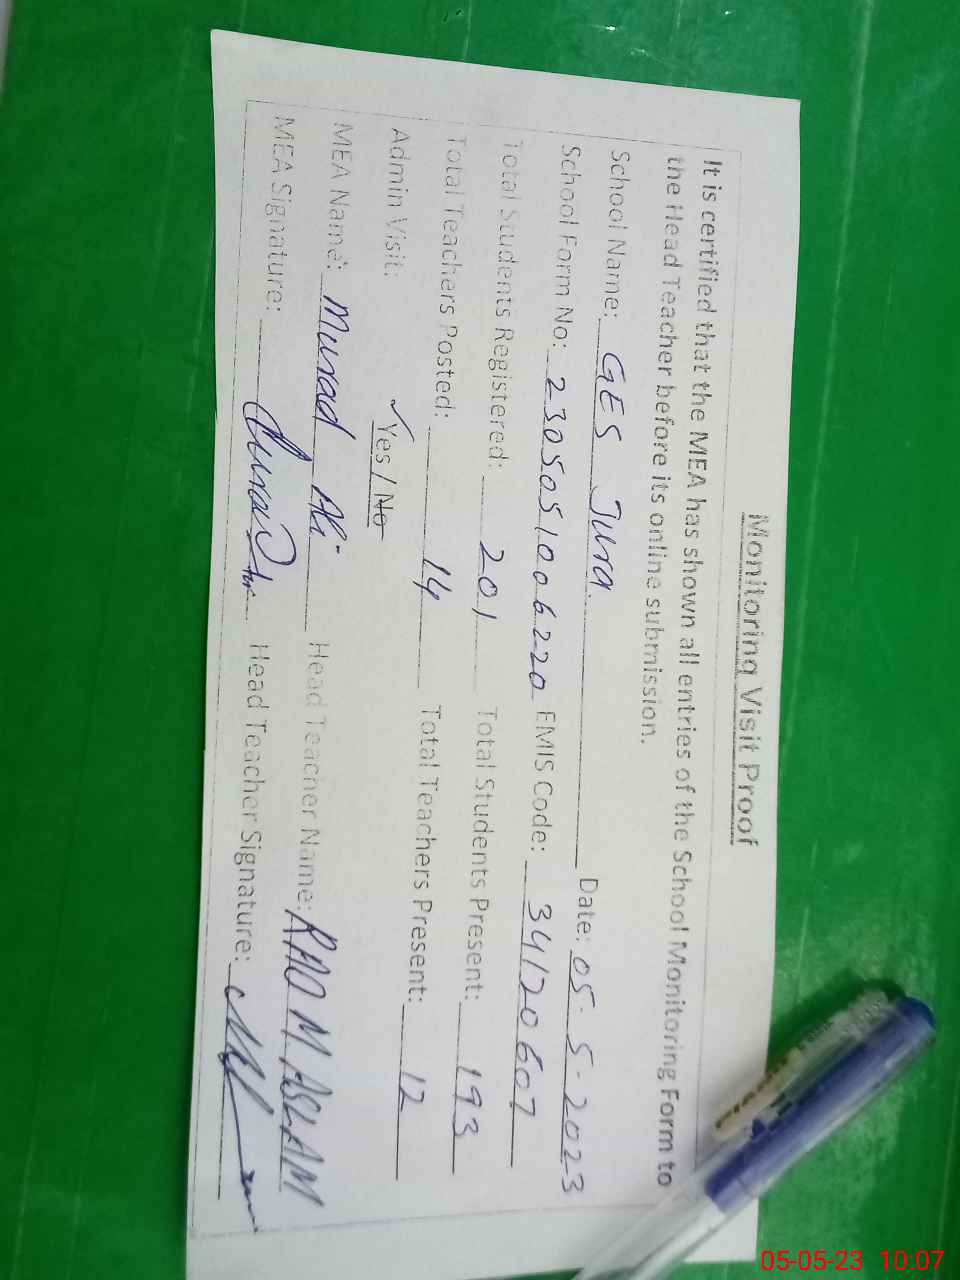 Monitoring Visit Proof
It is certified that the MEA has shown all entries of the School Monitoring Form to
the Head Teacher before its online submission.
School Name: GES Jura Date: 05-5-2023
School Form No: 2305051006220 EMIS Code: 34120607
Total Students Registered: 201 Total Students Present: 193
Total Teachers Posted: 14 Total Teachers Present: 12
Admin Visit: ✓ Yes / No
MEA Name: Murad Ali Head Teacher Name: RAO M. ASLAM
MEA Signature: Head Teacher Signature:
05-05-23 10:07